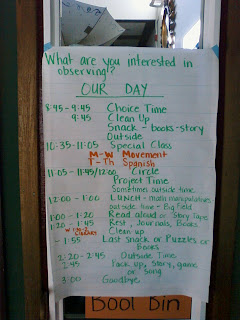 What are you interested in
observing!?
OUR DAY
8:45 - 9:45 Choice Time
9:45 Clean Up
Snack - books - story
Outside
10:35 - 11:05 Special Class
M-W Movement
T-Th Spanish
11:05 - 11:45/12:00 Circle
Project Time
Sometimes outside time
12:00 - 1:00 LUNCH - math manipulatives
outside time - Big Field
1:00 - 1:20 Read aloud or Story Tape
1:20 - 1:45 Rest, Journals, Books
Clean up
- 1:55 Last snack or Puzzles or
Books
2:20 - 2:45 Outside Time
2:45 Pack up, Story, game
or Song
3:00 Goodbye
Book Bin